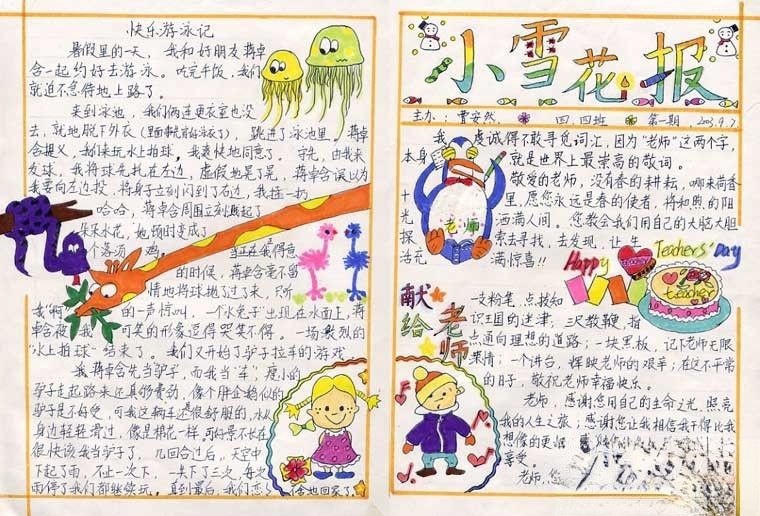 快乐游泳记
暑假里的一天，我和好朋友蒋卓
含一起约好去游泳。吃完午饭，我们
就迫不急待地上路了。
来到泳池，我们俩连更衣室也没
去，就地脱下外衣（里面早就有泳衣了），跳进了泳池里。蒋卓
含提义，我们来玩水上拍球，我爽快地同意了。守先，由我来
发球。我将球先扎在左边，虚假地晃了晃，蒋卓含误以为
我要向左边投，将身子立刻闪到了右边，我猛一扔
哈哈，蒋卓含周围立刻溅起了
朵朵水花，她顿时变成了
个落汤鸡。当正在我得意
的时候，蒋卓含毫不留
情地将球抛了过了来，只听
我“啊”的一声惊叫，一个“水兔子”出现在水面上，蒋
卓含被我可笑的形象逗得哭笑不得。一场激烈的
“水上拍球”结束了。我们又开始了驴子拉车的游戏
蒋卓含先当驴子，而我当“车”，瘦小的
驴子走起路来还真够费劲，像个胖企鹅似的
驴子是不好受，可我这辆车还很舒服的，水从
身边轻轻滑过，像是棉花一样。可好景不长在
很快该我当驴子了，几回合过后，天空中
下起了雨，不止一次下，一共下了三次，每次
雨停了我们都继续玩。直到最后，我们恋
舍地回家了
小雪花报
主办：曹安然 四.四班 第一期 2003.9.7
我虔诚得不敢寻觅词汇，因为“老师”这两个字，
本身就是世界上最崇高的敬词。
敬爱的老师，没有春的耕耘，哪来荷香
十里，愿您永远是春的使者，将和煦的阳
光洒满人间。您教会我们用自己的大脑大胆
探索去寻找，去发现，让生
活充满惊喜！！
老师
Happy Teachers' Day
teacher
献给老师
一支粉笔，点拨知
识王国的迷津；三尺教鞭，指
点通向理想的道路；一块黑板，记下老师无限
深情；一个讲台，辉映老师的艰辛；在这不平常
的日子，敬祝老师幸福快乐。
老师，感谢您用自己的生命之光，照亮
我的人生之旅；感谢您让我相信我干得比我
想像的更好
享受。
老师，您